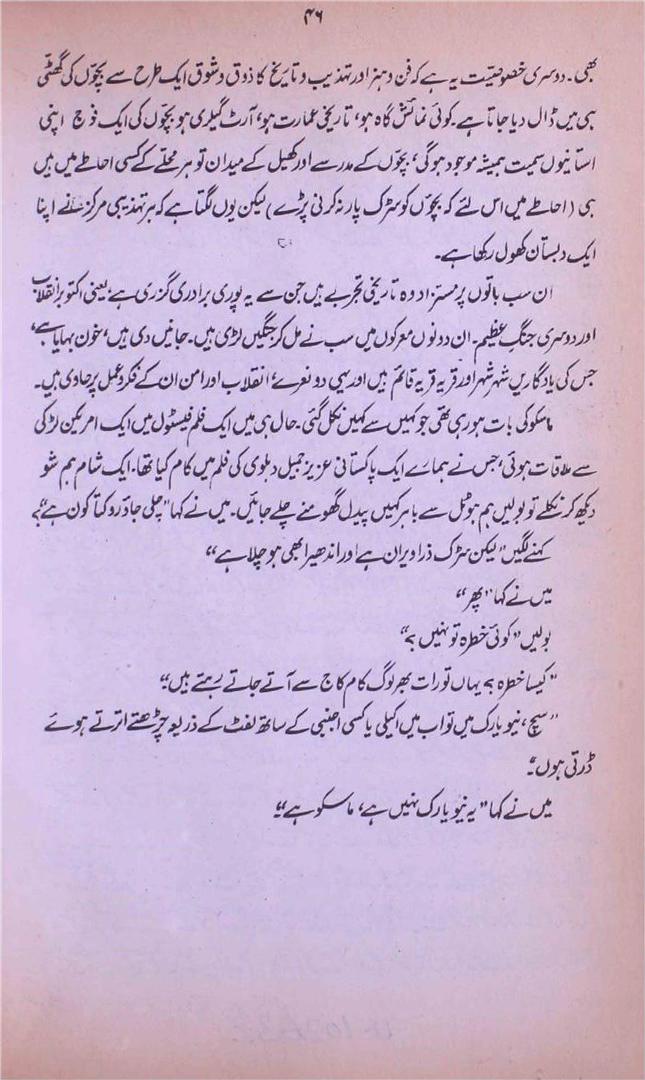 ۴۶
بھی۔ دوسری خصوصیت یہ ہے کہ فن و ہنر اور تہذیب و تاریخ کا ذوق و شوق ایک طرح سے بچّوں کی گھٹی
ہی میں ڈال دیا جاتا ہے۔ کوئی نمائش گاہ ہو، تاریخی عمارت ہو، آرٹ گیلری ہو بچّوں کی ایک فوج اپنی
استانیوں سمیت ہمیشہ موجود ہوگی، بچّوں کے مدرسے اور کھیل کے میدان تو ہر محلّے کے کسی احاطے میں ہیں
ہی (احاطے میں اس لئے کہ بچّوں کو سڑک پار نہ کرنی پڑے) لیکن یوں لگتا ہے کہ ہر تہذیبی مرکز نے اپنا
ایک دبستان کھول رکھا ہے۔
ان سب باتوں پر مستزاد وہ تاریخی تجربے ہیں جن سے یہ پوری برادری گزری ہے: یعنی اکتوبر انقلاب
اور دوسری جنگِ عظیم۔ ان دونوں معرکوں میں سب نے مل کر جنگیں لڑی ہیں۔ جانیں دی ہیں، خون بہایا ہے،
جس کی یادگاریں شہر شہر اور قریہ قریہ قائم ہیں اور یہی دو نعرے، انقلاب اور امن ان کے فکر و عمل پر حاوی ہیں۔
ماسکو کی بات ہو رہی تھی جو کہیں سے کہیں نکل گئی۔ حال ہی میں ایک فلم فیسٹول میں ایک امریکن لڑکی
سے ملاقات ہوئی، جس نے ہمارے ایک پاکستانی عزیز جمیل دہلوی کی فلم میں کام کیا تھا۔ ایک شام ہم شو
دیکھ کر نکلے تو بولیں ہم ہوٹل سے باہر کہیں پیدل گھومنے چلے جائیں۔ میں نے کہا "چلی جاؤ روکتا کون ہے؟"
کہنے لگیں "لیکن سڑک ذرا ویران ہے اور اندھیرا بھی ہو چلا ہے"
میں نے کہا "پھر"
بولیں "کوئی خطرہ تو نہیں؟"
"کیسا خطرہ؟ یہاں تو رات بھر لوگ کام کاج سے آتے جاتے رہتے ہیں۔"
"سچ، نیویارک میں تو اب میں اکیلی یا کسی اجنبی کے ساتھ لفٹ کے ذریعہ چڑھتے اترتے ہوئے
ڈرتی ہوں۔"
میں نے کہا "یہ نیویارک نہیں ہے، ماسکو ہے۔"